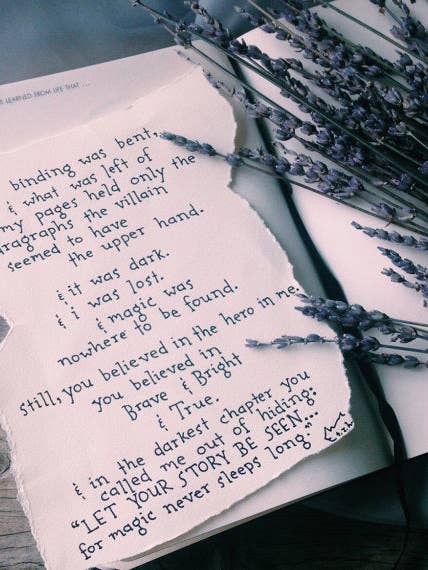 LEARNED FROM LIFE THAT ...
binding was bent.
& what was left of
my pages held only the
paragraphs the villain
seemed to have
the upper hand.
& it was dark.
& i was lost.
& magic was
nowhere to be found.
still, you believed in the hero in me.
you believed in
Brave & Bright
& True.
& in the darkest chapter you
called me out of hiding:
"LET YOUR STORY BE SEEN...
for magic never sleeps long."